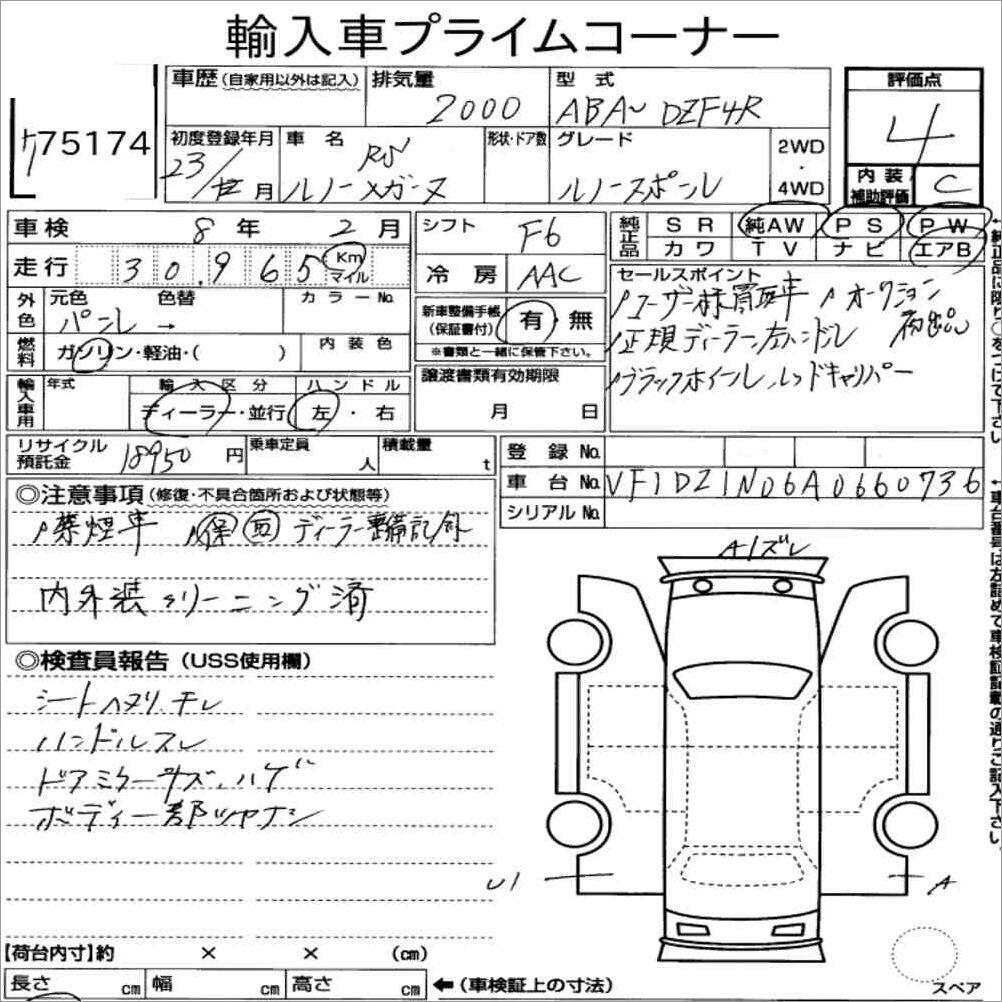 輸入車プライムコーナー
75174
車歴 (自家用以外は記入) 排気量 2000 型式 ABA~DZF4R 評価点 4
初度登録年月 23/12月 車名 ルノーメガーヌ RS 形状・ドア数 グレード ルノースポール 2WD・4WD 内装補助評価 C
車検 8年 2月 シフト F6 純正品 SR 純AW PS PW
カワ TV ナビ エアB
走行 30,965 Km マイル 冷房 AAC
外色 元色 パール 色替 → カラーNo. 新車整備手帳 (保証書付) 有・無
※書類と一緒に保管下さい。
セールスポイント
ユーザー様買取車 オークション初出品
正規ディーラー左ハンドル
ブラックホイール レッドキャリパー
燃料 ガソリン・軽油・( ) 内装色
輸入車用 年式 輸入区分 ディーラー・並行 ハンドル 左・右
譲渡書類有効期限 月 日
リサイクル預託金 18950円 乗車定員 人 積載量 t
登録No.
車台No. VF1DZ1N06A0660736
シリアルNo.
◎注意事項 (修復・不具合箇所および状態等)
禁煙車 保 取 ディーラー整備記録
内外装クリーニング済
◎検査員報告 (USS使用欄)
シートヘタリ、チレ
ハンドルスレ
ドアミラーキズ、ハゲ
ボディ一部ツヤナシ
A1ズレ
U1
A
スペア
【荷台内寸】約 × × (cm)
長さ cm 幅 cm 高さ cm ←(車検証上の寸法)